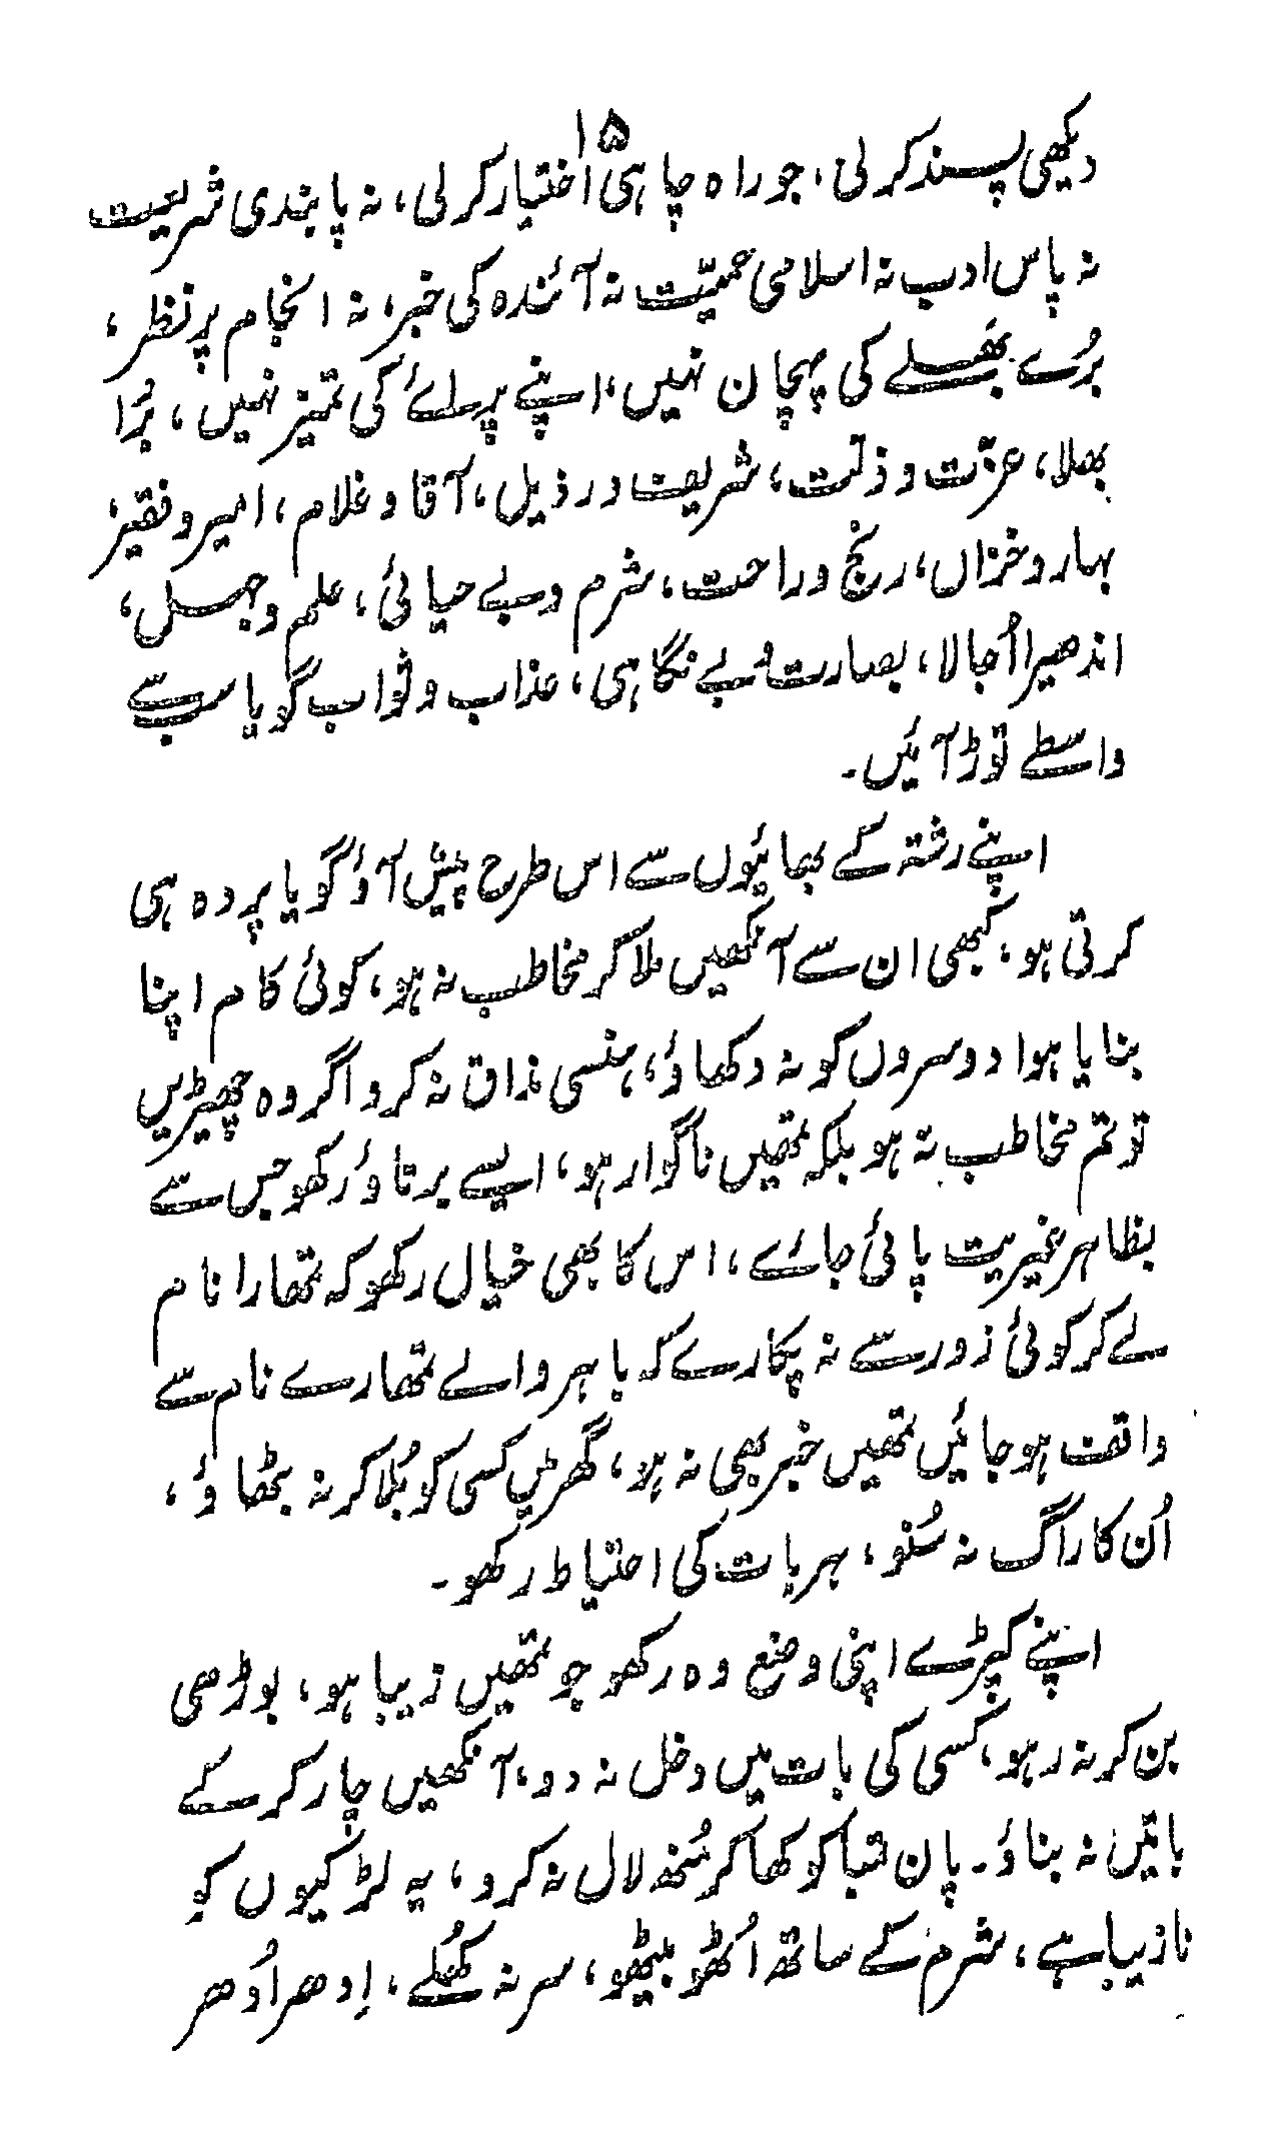 ۱۵
دیکھی پسند کر لی، جو راہ چاہی اختیار کر لی، نہ پابندی شریعت
نہ پاس ادب نہ اسلامی حمیّت نہ آئندہ کی خبر، نہ انجام پر نظر،
بُرے بھلے کی پہچان نہیں، اپنے پرائے کی تمیز نہیں، بُرا
بھلا، عزّت و ذلّت، شریف و رذیل، آقا و غلام، امیر و فقیر،
بہار و خزاں، رنج و راحت، شرم و بے حیائی، علم و جہل،
اندھیرا اُجالا، بصارت و بے نگاہی، عذاب و ثواب گویا سب سے
واسطے توڑ آئیں۔
اپنے رشتہ کے بھائیوں سے اس طرح پیش آؤ گویا پردہ ہی
کرتی ہو، کبھی ان سے آنکھیں ملا کر مخاطب نہ ہو، کوئی کام اپنا
بنایا ہوا دوسروں کو نہ دکھاؤ، ہنسی مذاق نہ کرو اگر وہ چھیڑیں
تو تم مخاطب نہ ہو بلکہ تمھیں ناگوار ہو، ایسے برتاؤ رکھو جس سے
بظاہر غیریت پائی جائے، اس کا بھی خیال رکھو کہ تمھارا نام
لے کر کوئی زور سے نہ پکارے کہ باہر والے تمھارے نام سے
واقف ہو جائیں تمھیں خبر بھی نہ ہو، گھر میں کسی کو بُلا کر نہ بٹھاؤ،
اُن کا راگ نہ سُنو، ہر بات کی احتیاط رکھو۔
اپنے کپڑے اپنی وضع وہ رکھو جو تمھیں زیبا ہو، بوڑھی
بن کر نہ رہو، کسی کی بات میں دخل نہ دو، آنکھیں چار کر کے
باتیں نہ بناؤ۔ پان تمباکو کھا کر مُنھ لال نہ کرو، یہ لڑکیوں کو
نازیبا ہے، شرم کے ساتھ اُٹھو بیٹھو، سر نہ کُھلے، اِدھر اُدھر